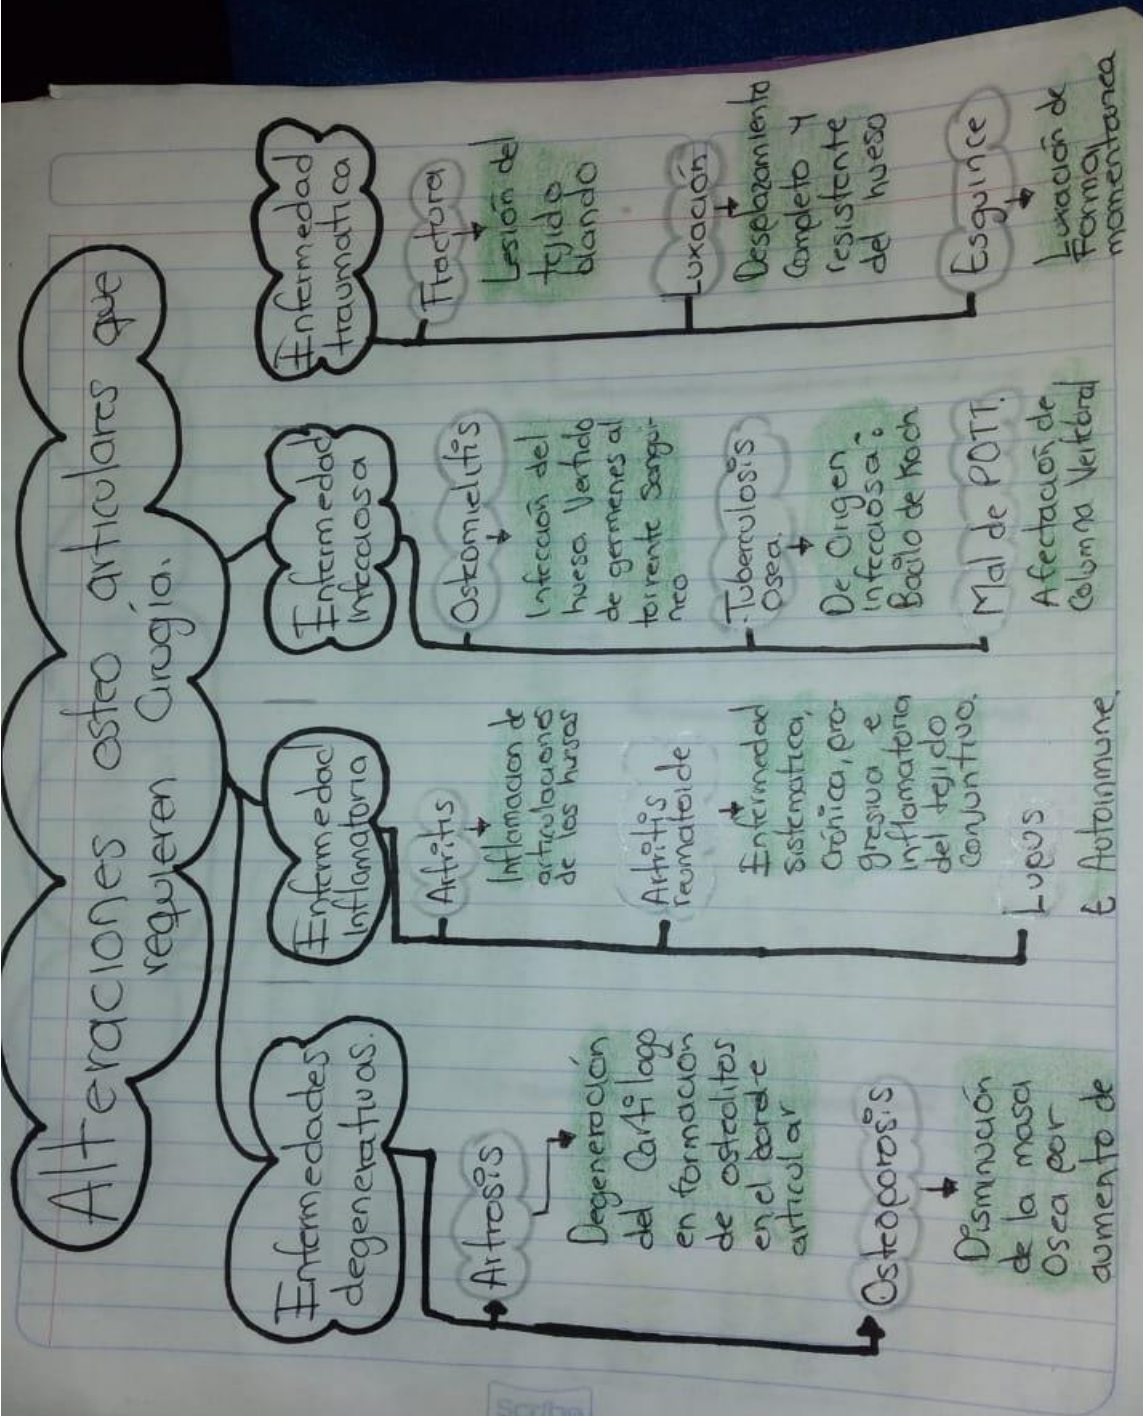 Alteraciones osteo articulares que
requieren Cirugía.
Enfermedades
degenerativas.
Artrosis
Degeneración
del Cartilago
en formación
de osteolitos
en el borde
articular
Osteoporosis
Disminución
de la masa
Osea por
aumento de
Enfermedad
Inflamatoria
Artritis
Inflamacion de
articulaciones
de los huesos
Artritis
reumatoide
Enfermedad
sistematica,
Crónica, pro-
gresiva e
inflamatoria
del tejido
Conjuntivo.
Lupus
E Autoinmune
Enfermedad
Infecciosa
Osteomielitis
Infección del
hueso. Vertido
de germenes al
torrente Sangui-
neo
Tuberculosis
osea.
De Origen
infecciosa:
Bacilo de Koch
Mal de POTT.
Afectación de
Columna Vertebral
Enfermedad
traumatica
Fractura
Lesión del
tejido
blando
Luxación
Desplazamiento
Completo y
resistente
del hueso
Esguince
Luxación de
Forma
momentanea
Scribe